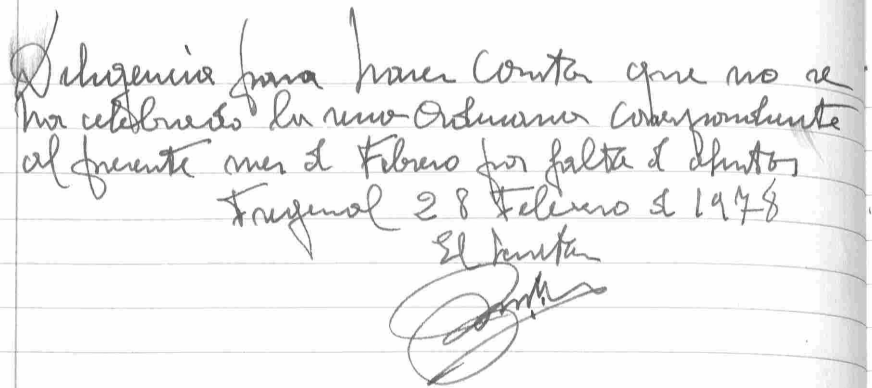 Diligencia para hacer Constar que no se
ha celebrado la reunion Ordinaria Correspondiente
al presente mes d Febrero por falta d asuntos
Fregenal 28 Febrero d 1978
El Secretar